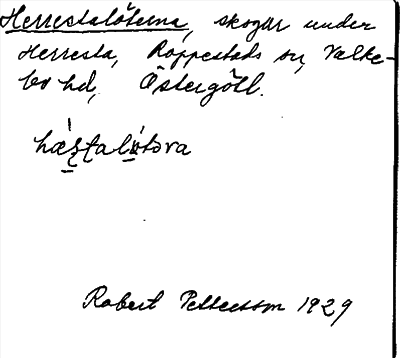 Herrestalöterna, skogar under
Herresta, Rappestads sn, Valke-
bo hd, Östergötl.
Robert Pettersson 1929